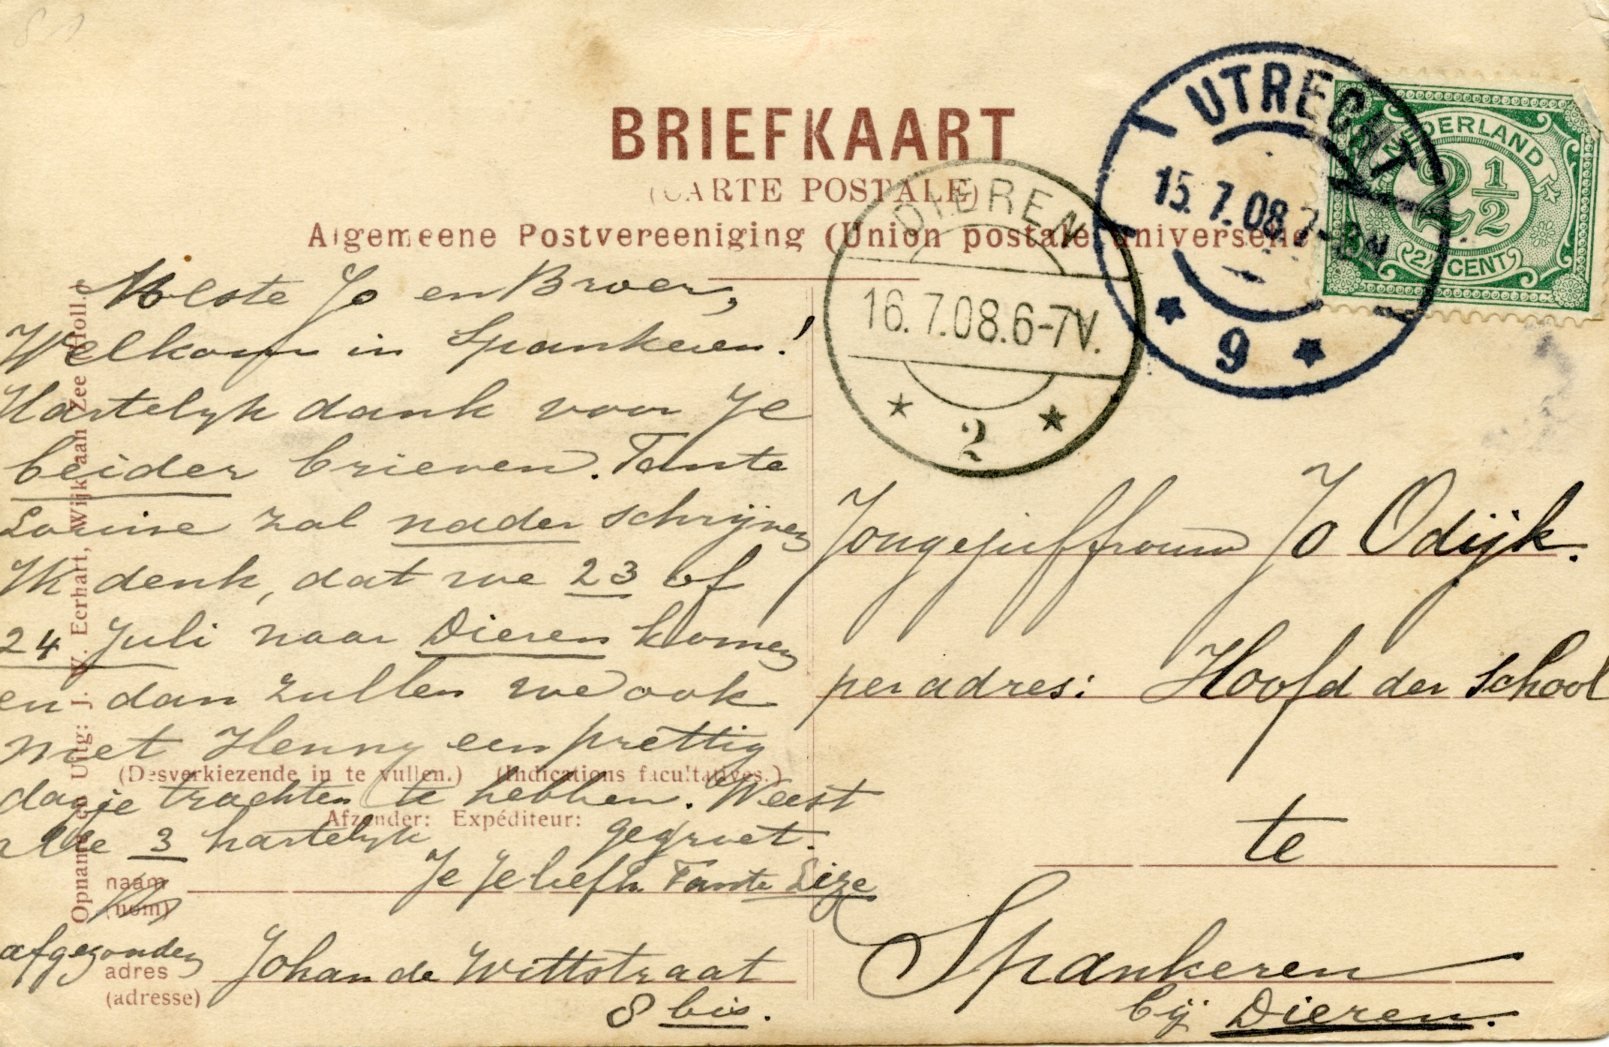 BRIEFKAART
(CARTE POSTALE)
Algemeene Postvereeniging (Union postale universelle)
UTRECHT
15.7.08.7-8N
9
NEDERLAND
2 1/2
2½ CENT
DIEREN
16.7.08.6-7V.
2
Jo en Broer,
Welkom in Spankeren!
Hartelijk dank voor je
beider brieven. Tante
Louise zal nader schrijven
Ik denk, dat we 23 of
24 Juli naar Dieren komen
en dan zullen we ook
met Henny een prettig
dagje trachten te hebben. Weest
alle 3 hartelijk gegroet.
Je liefh. Tante Lize
afgezonden Johan de Wittstraat
8 bis.
(Desverkiezende in te vullen.) (Indications facultatives.)
Afzender: Expéditeur:
naam
(nom)
adres
(adresse)
Opname en Uitg: J. W. Eerhart, Wijk aan Zee (Holl.)
Jongejuffrouw Jo Odijk.
per adres: Hoofd der School
te
Spankeren
bij Dieren.